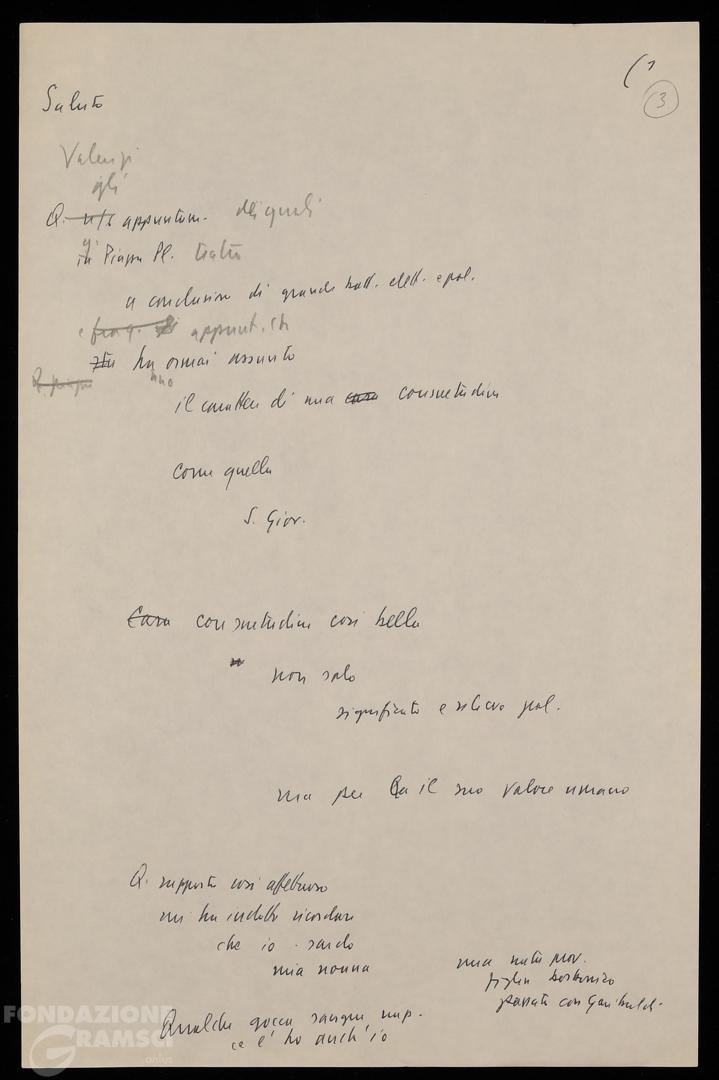 (1
3
Saluto
Valenzi
gli
Q. appuntam. dei quali
in Piazza Pl. teatro
a conclusione di grande batt. elett. e pol.
e appunt. ch
ha ormai assunto
nno
il carattere di una cara consuetudine
come quella
S. Giov.
Cara consuetudine così bella
non solo
significato e rilievo pol.
ma per il suo valore umano
Q. rapporto così affettuoso
mi ha indotto ricordare
che io - sardo
mia nonna
una
figlia borbonico
passato con Garibaldi
Qualche goccia sangue nap.
ce l'ho anch'io
FONDAZIONE
GRAMSCI
onlus